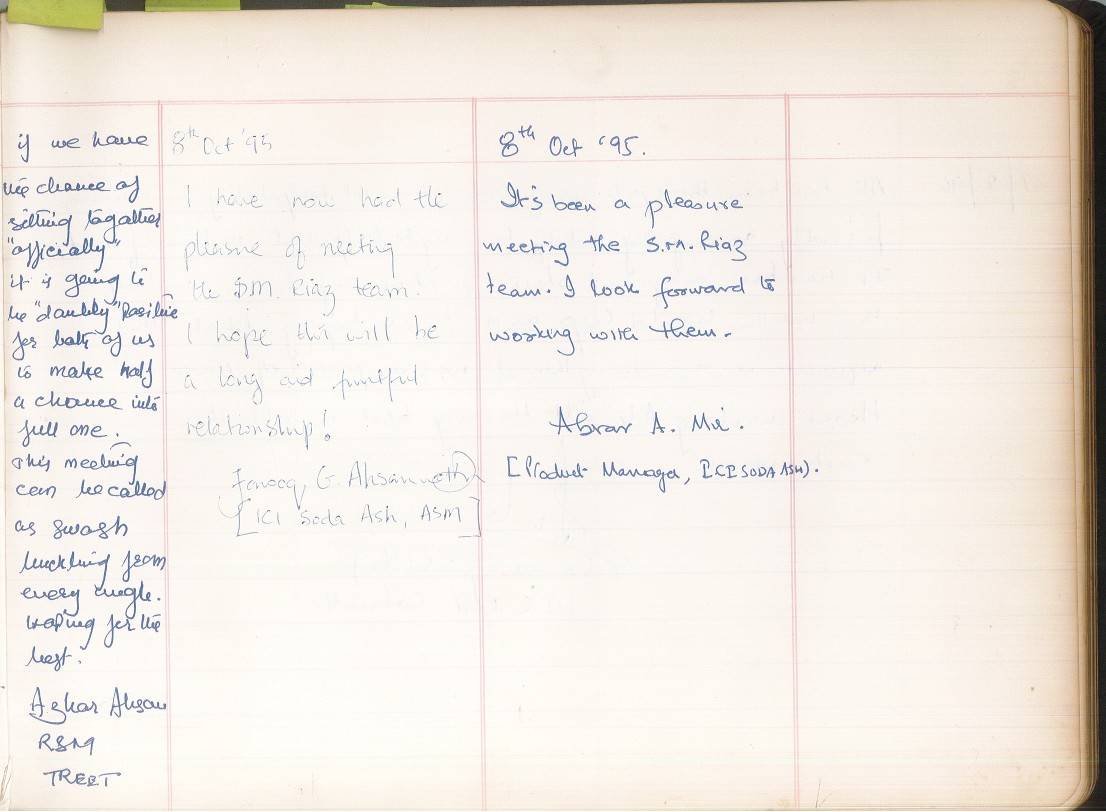 if we have
the chance of
sitting togather
"officially"
it is going to
be "doubly" Positive
for both of us
to make half
a chance into
full one.
This meeting
can be called
as swash
buckling from
every angle.
Hoping for the
best.
Azhar Ahsan
RSM
TREET
8th Oct '95
I have now had the
pleasure of meeting
the S.M. Riaz team.
I hope this will be
a long and fruitful
relationship!
Farooq G. Ahsan
[ICI Soda Ash, ASM]
8th Oct '95.
It's been a pleasure
meeting the S.M. Riaz
team. I look forward to
working with them.
Abrar A. Mir.
[Product Manager, ICI SODA ASH).